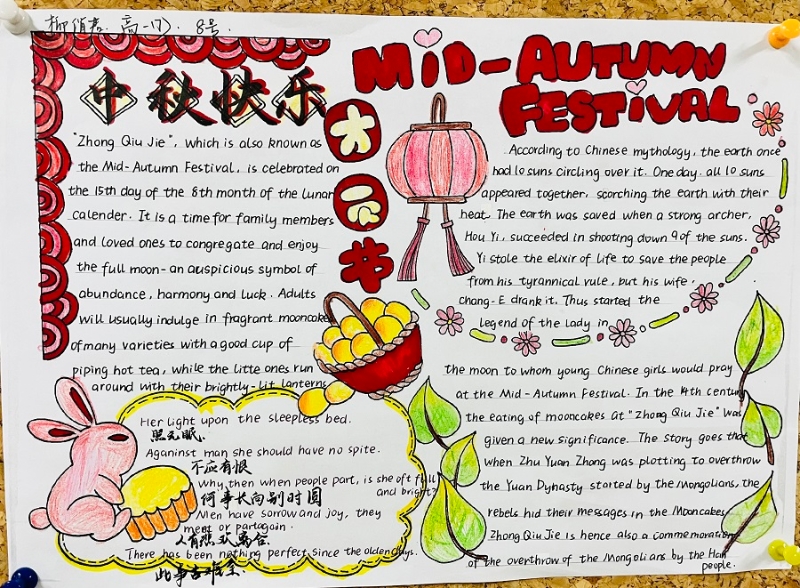 高一(7). 8号.
中秋快乐
MID-AUTUMN
FESTIVAL
节
"Zhong Qiu Jie", which is also known as
the Mid-Autumn Festival, is celebrated on
the 15th day of the 8th month of the lunar
calender. It is a time for family members
and loved ones to congregate and enjoy
the full moon - an auspicious symbol of
abundance, harmony and luck. Adults
will usually indulge in fragrant mooncakes
of many varieties with a good cup of
piping hot tea, while the litte ones run
around with their brightly-lit lanterns
According to Chinese mythology, the earth once
had 10 suns circling over it. One day. all 10 suns
appeared together, scorching the earth with their
heat. The earth was saved when a strong archer,
Hou Yi, succeeded in shooting down 9 of the suns.
Yi stole the elixir of life to save the people
from his tyrannical rule, but his wife,
chang-E drank it. Thus started the
legend of the lady in
the moon to whom young Chinese girls would pray
at the Mid-Autumn Festival. In the 14th century
the eating of mooncakes at "Zhong Qiu Jie" was
given a new significance. The story goes that
when Zhu Yuan Zhong was plotting to overthrow
the Yuan Dynasty started by the Mongolians, the
rebels hid their messages in the Mooncakes.
Zhong Qiu Jie is hence also a commemoration
of the overthrow of the Mongolians by the Han
people.
Her light upon the sleepless bed.
照无眠.
Againinst man she should have no spite.
不应有恨
Why then when people part, is she oft full
and bright?
何事长向别时圆
Men have sorrow and joy, they
meet or partagain.
人有悲欢离合.
There has been nothing perfect since the olden days.
此事古难全.